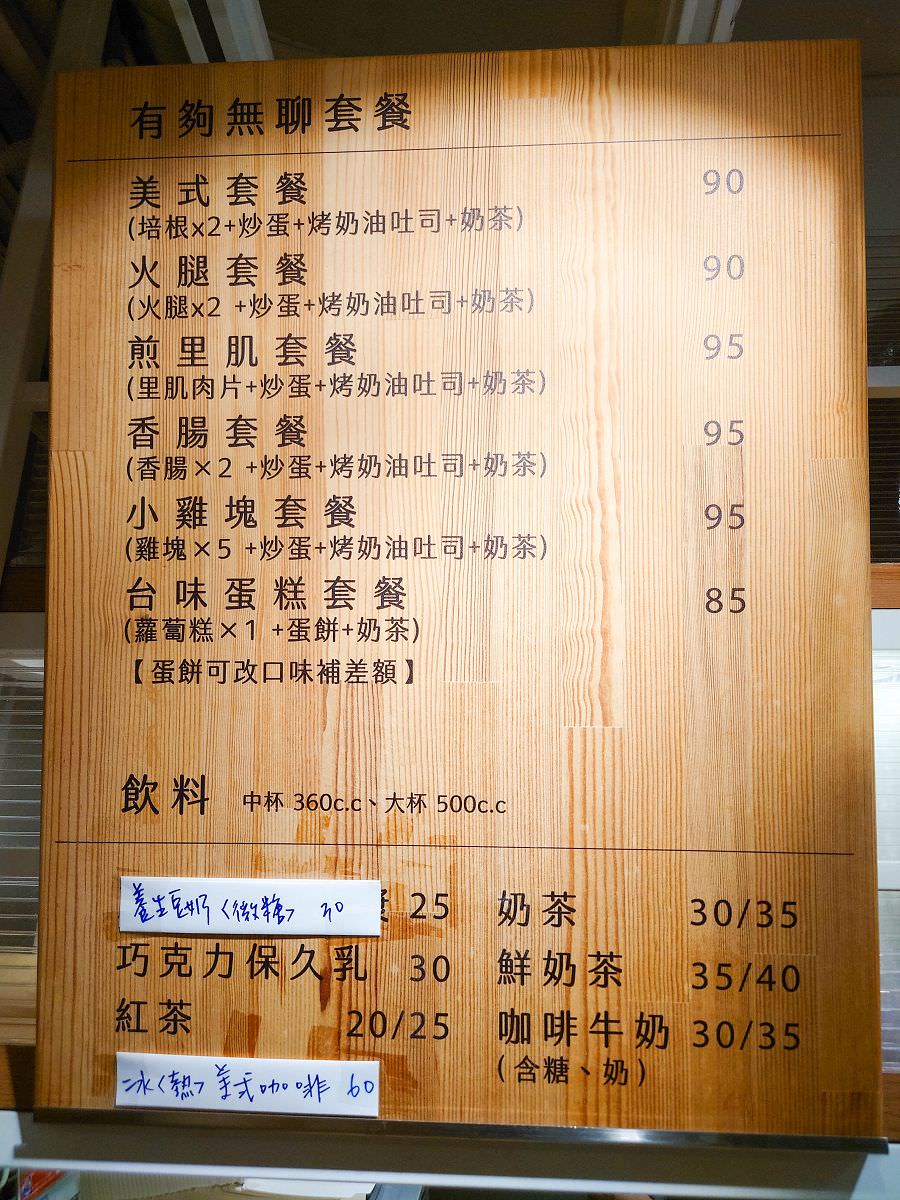 有夠無聊套餐
美式套餐 90
(培根x2+炒蛋+烤奶油吐司+奶茶)
火腿套餐 90
(火腿x2 +炒蛋+烤奶油吐司+奶茶)
煎里肌套餐 95
(里肌肉片+炒蛋+烤奶油吐司+奶茶)
香腸套餐 95
(香腸×2 +炒蛋+烤奶油吐司+奶茶)
小雞塊套餐 95
(雞塊×5 +炒蛋+烤奶油吐司+奶茶)
台味蛋糕套餐 85
(蘿蔔糕×1 +蛋餅+奶茶)
【蛋餅可改口味補差額】
飲料 中杯 360c.c、大杯 500c.c
養生豆奶〈微糖〉 30 25 奶茶 30/35
巧克力保久乳 30 鮮奶茶 35/40
紅茶 20/25 咖啡牛奶 30/35
(含糖、奶)
冰〈熱〉美式咖啡 60